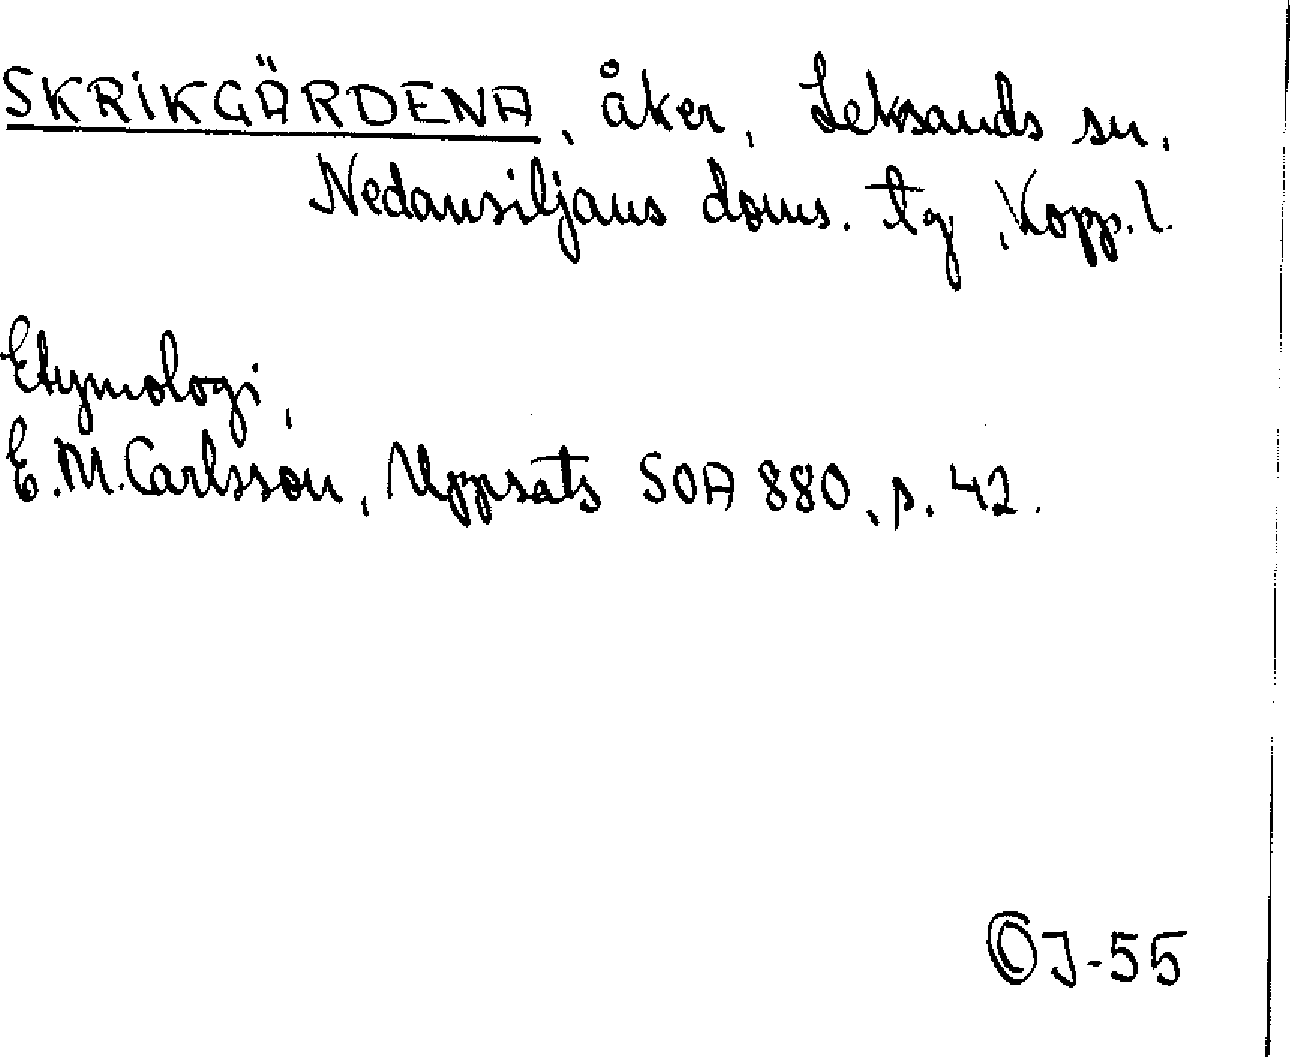 SKRIKGÄRDENA, åker, Leksands sn,
Nedansiljans doms. tg, Kopp. l.
Etymologi,
E. M. Carlsson, Uppsats SOA 880, s. 42.
ÖJ-55